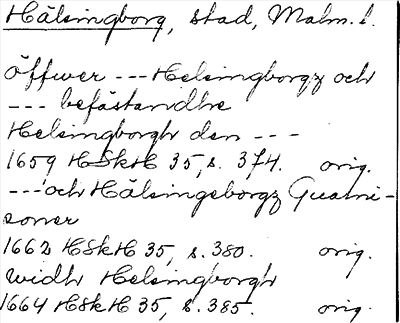 Hälsingborg, stad, Malm. l.
öffwer --- Helsingborgz och
--- befästandhe
Helsingborgh den ---
1659 HSkH 35, s. 374. orig.
--- och Hälsingeborgz Guarni-
soner
1662 HSkH 35, s. 380. orig.
widh Helsingborgh
1664 HSkH 35, s. 385. orig.